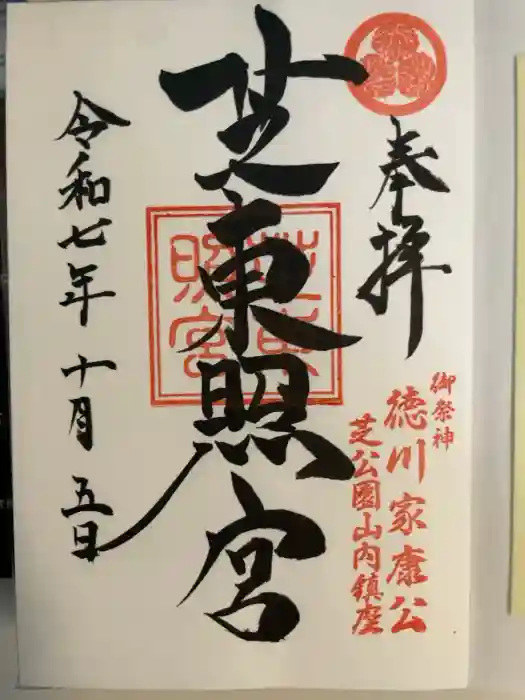 奉拝
御祭神
徳川家康公
芝公園山内鎮座
芝東照宮
芝東照宮
令和七年 十月 五日